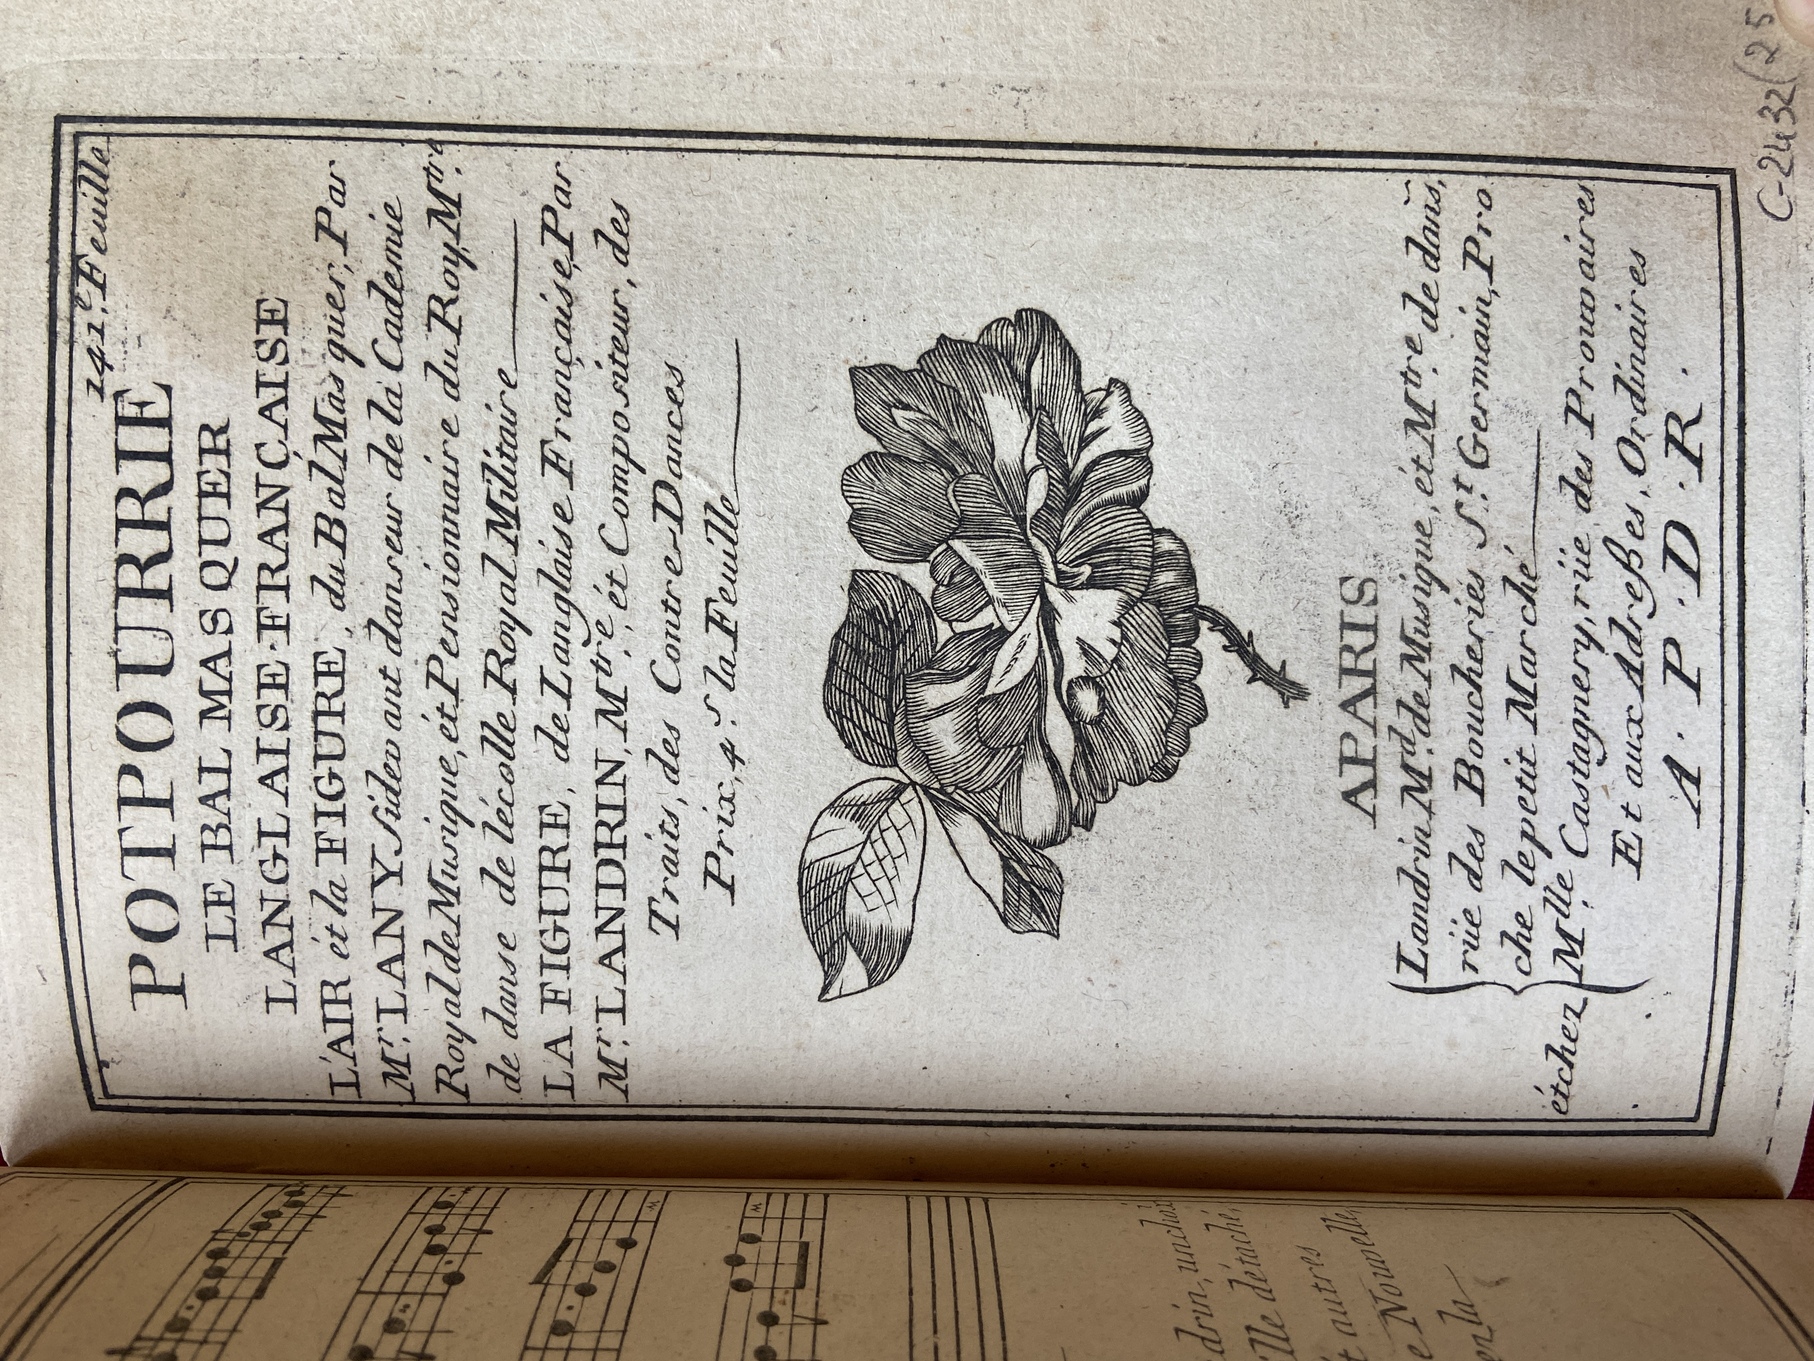 242.e Feuille
POTPOURRIE
LE BAL MASQUER
LANGLAISE-FRANÇAISE
L'AIR ét la FIGURE, du Bal Masquer, Par
Mr. LANY sidevant danseur de la Cademie
Royal de Musique, ét Pensionnaire du Roy, Mtre
de danse de lécolle Royal Militaire
LA FIGURE, de Langlaise Française, Par
Mr. LANDRIN, Mtre. ét Compositeur, des
Traits, des Contre-Dances
Prix, 4.s la Feuille
APARIS
Landrin Md. de Musique, ét Mtre. de dans,
rüe des Boucheries St. Germain, Pro
che le petit Marché
étchez Mlle Castagnery, rüe des Prouvaires
Et aux Adreßes, Ordinaires
A. P. D. R.
C-2432(25
drin, unchez
ille détaché,
t autres
e Nouvelle,
en la